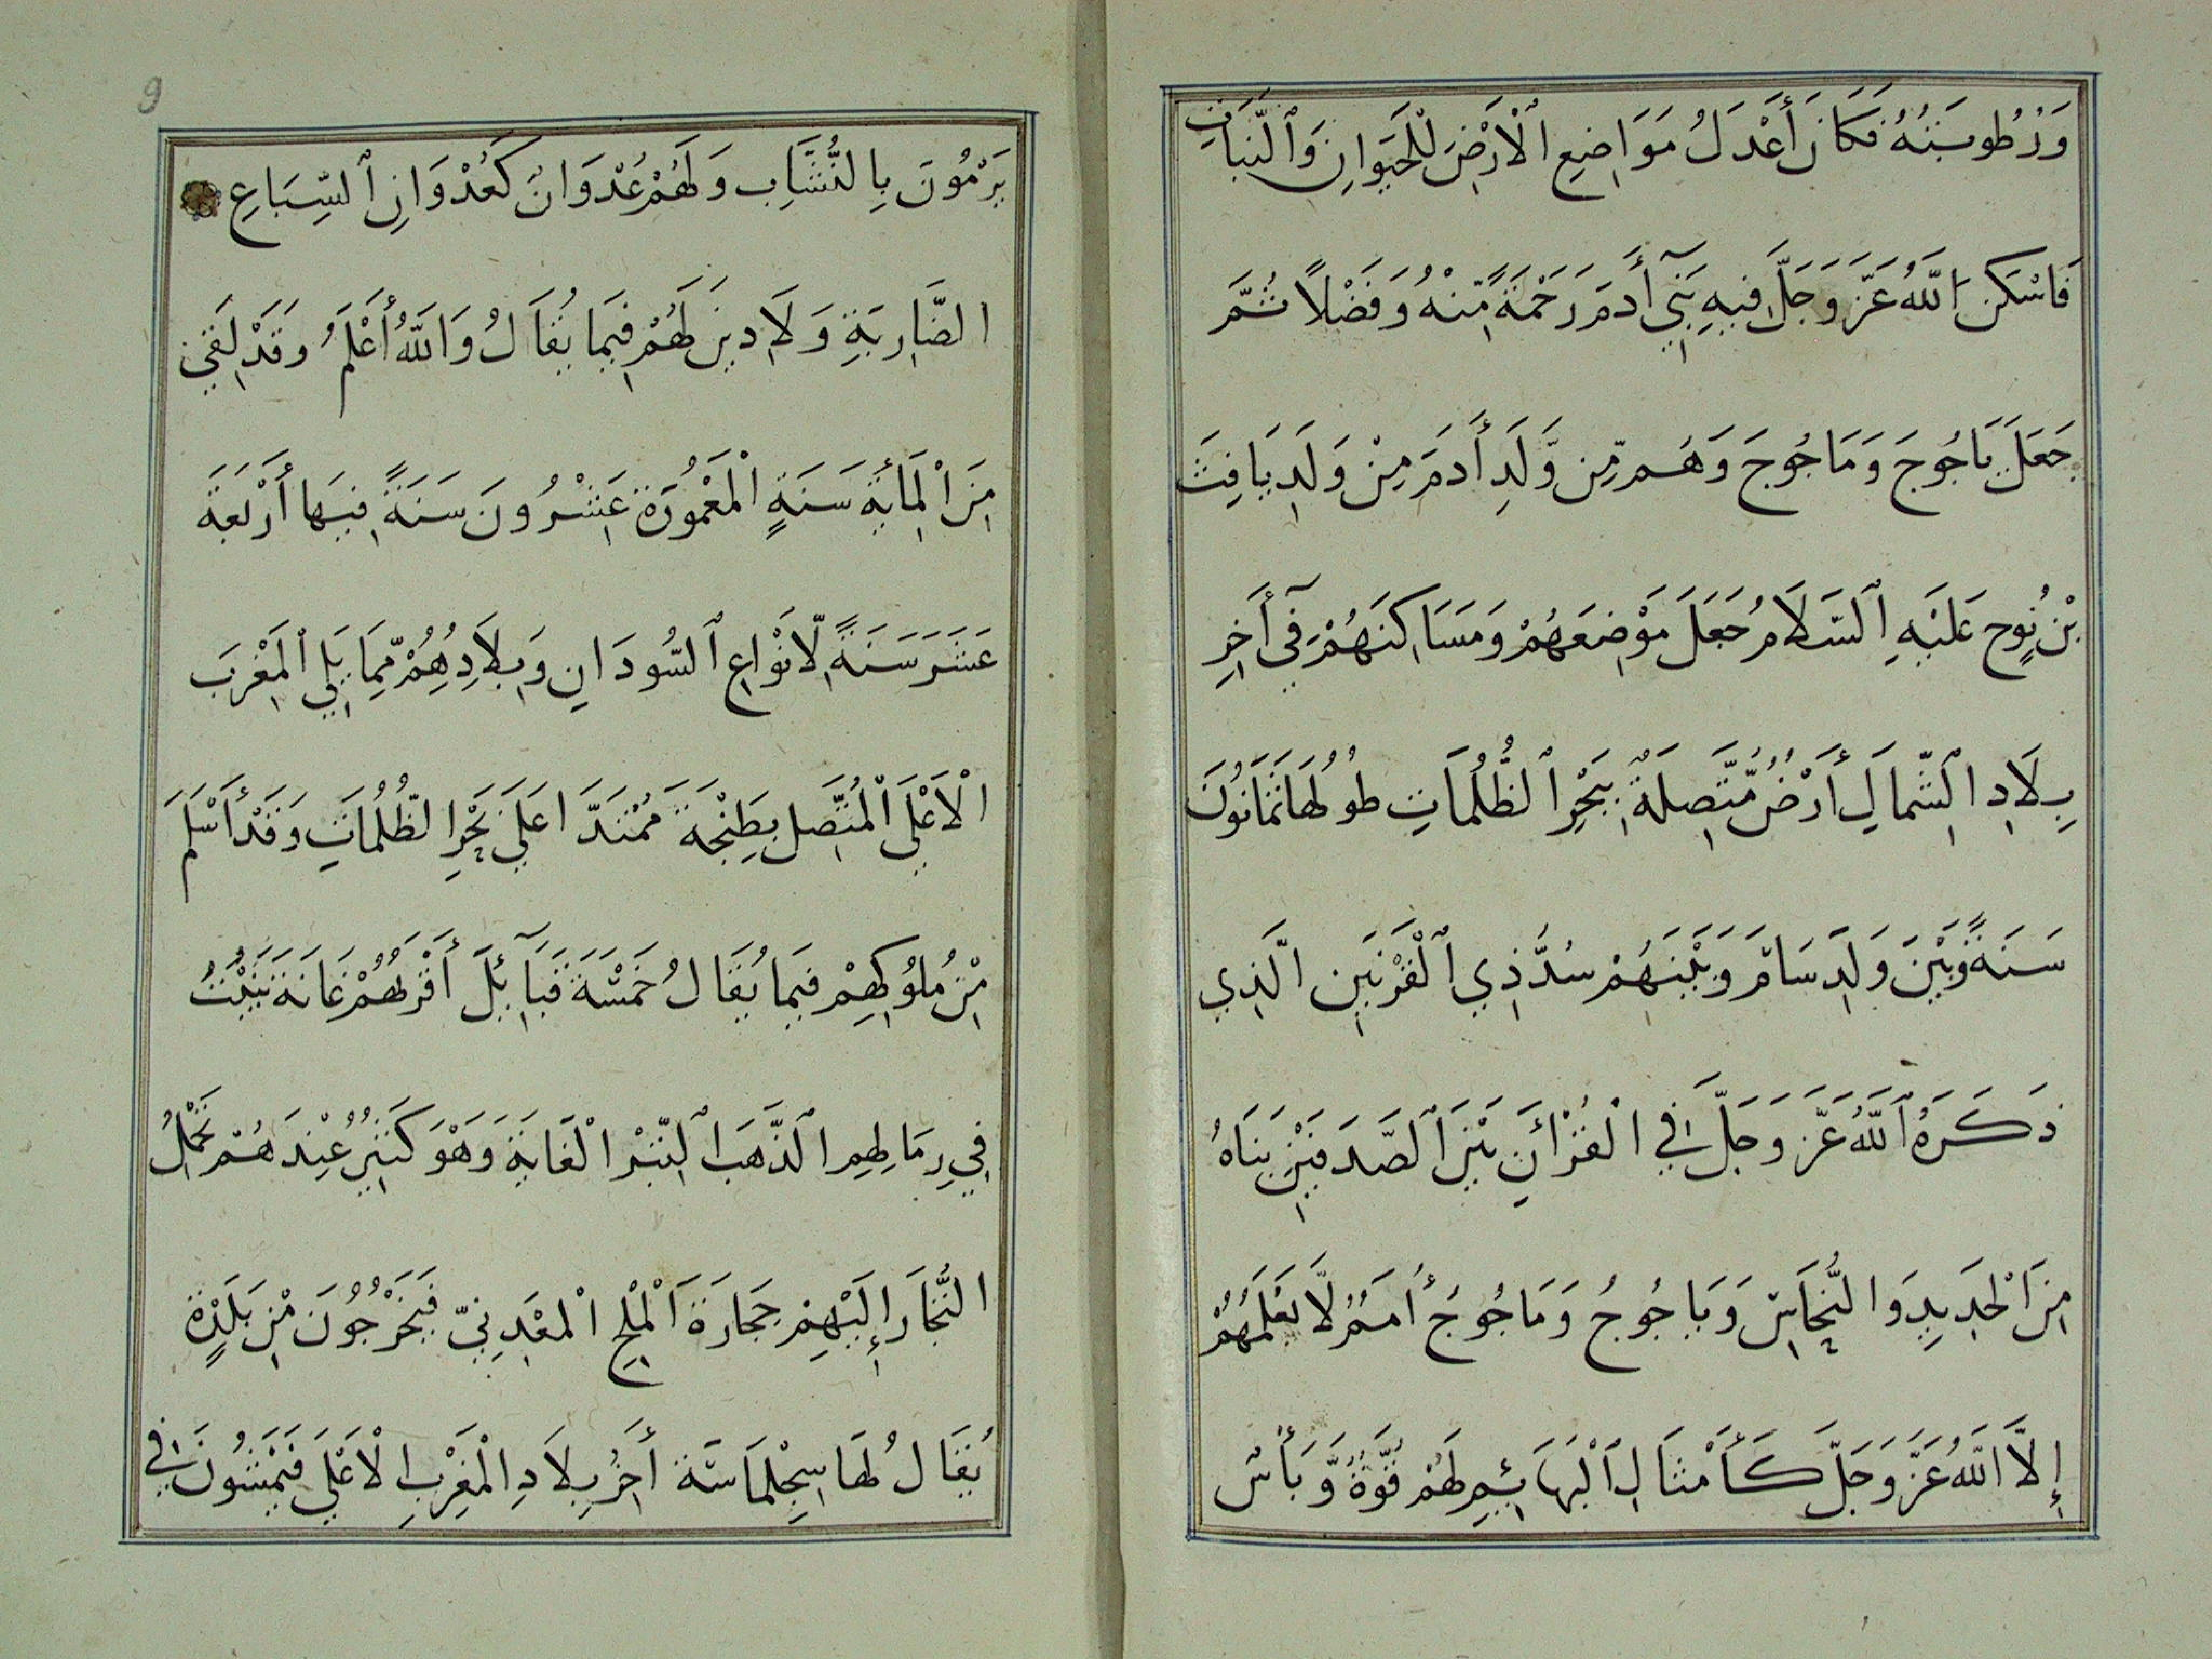 وَرُطُوبَتُهُ فَكَانَ أَعْدَلُ مَوَاضِعِ الْأَرْضِ لِلْحَيَوَانِ وَٱلنَّبَاتِ
فَاَسْكَنَ اللَّهُ عَزَّ وَجَلَّ فِيهِ بَنِيٓ أَدَمَ رَحْمَةً مِّنْهُ وَفَضْلاً ثُمَّ
جَعَلَ يَاجُوجَ وَمَاجُوجَ وَهُم مِّن وَّلَدِ أَدَمَ مِنْ وَلَدِ يَافِثَ
بْنِ نُوحٍ عَلَيْهِ ٱلسَّلَامُ جَعَلَ مَوْضِعَهُمْ وَمَسَاكِنَهُمْ فِيٓ أَخِرِ
بِلَادِ الشِّمَالِ أَرْضٌ مُّتَّصِلَةٌ بِبَحْرِ ٱلظُّلُمَاتِ طُولُهَا ثَمَانُونَ
سَنَةً وَبَيْنَ وَلَدِ سَامَ وَبَيْنَهُمْ سُدُّ ذِي ٱلْقَرْنَيْنِ الَّذِي
ذَكَرَهُ ٱللَّهُ عَزَّ وَجَلَّ فِي الْقُرْأَنِ بَيْنَ ٱلصَّدَفَيْنِ بَنَاهُ
مِنَ الْحَدِيدِ وَالنُّحَاسِ وَيَاجُوجُ وَمَاجُوجُ أُمَمٌ لَّا يَعْلَمُهُمْ
إِلَّا اللَّهُ عَزَّ وَجَلَّ كَأَمْثَالِ ٱلْبَهَائِمِ لَهُمْ قُوَّةٌ وَّبَأْسٌ
9
يَرْمُونَ بِالنُّشَّابِ وَلَهُمْ عُدْوَانٌ كَعُدْوَانِ ٱلسِّبَاعِ
الضَّارِيَةِ وَلَا دِينَ لَهُمْ فِيمَا يُقَالُ وَاللَّهُ أَعْلَمُ وَقَدْ بَقِيَ
مِنَ الْمِائَةِ سَنَةٍ الْمَعْمُورَةِ عِشْرُونَ سَنَةً فِيهَا أَرْبَعَةَ
عَشَرَ سَنَةً لِّأَنْوَاعِ ٱلسُّودَانِ وَبِلَادُهُمْ مِّمَا يَلِي ٱلْمَغْرِبَ
الْأَعْلَى ٱلْمُتَّصِلِ بِطَنْجَةَ مُمْتَدَّا عَلَى بَحْرِ الظُّلُمَاتِ وَقَدْ أَسْلَمَ
مِنْ مُلُوكِهِمْ فِيمَا يُقَالُ خَمْسَةَ قَبَآئِلَ أَقْرَبُهُمْ غَانَةَ يَنْبُتُ
فِي رِمَالِهِمِ الذَّهَبُ ٱلتِّبْرُ الْغَايَةِ وَهْوَ كَثِيرٌ عِنْدَهُمْ تَحْمِلُ
التُّجَّارُ إِلَيْهِمْ حِجَارَةَ الْمِلْحِ الْمَعْدِنِيِّ فَيَخْرُجُونَ مِنْ بَلْدَةٍ
يُقَالُ لَهَا سِجِلْمَاسَة أَخِرُ بِلَادِ الْمَغْرِبِ الْأَعْلَى فَيَمْشُونَ فِي